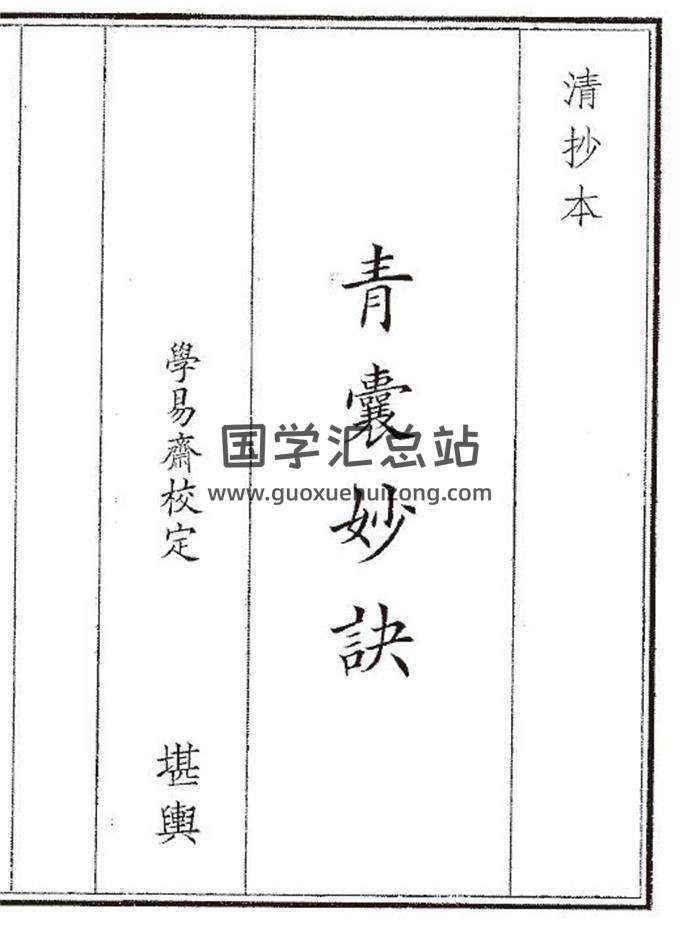 清抄本
青囊妙訣
學易齋校定
堪輿
国学汇总站
www.guoxuehuizong.com